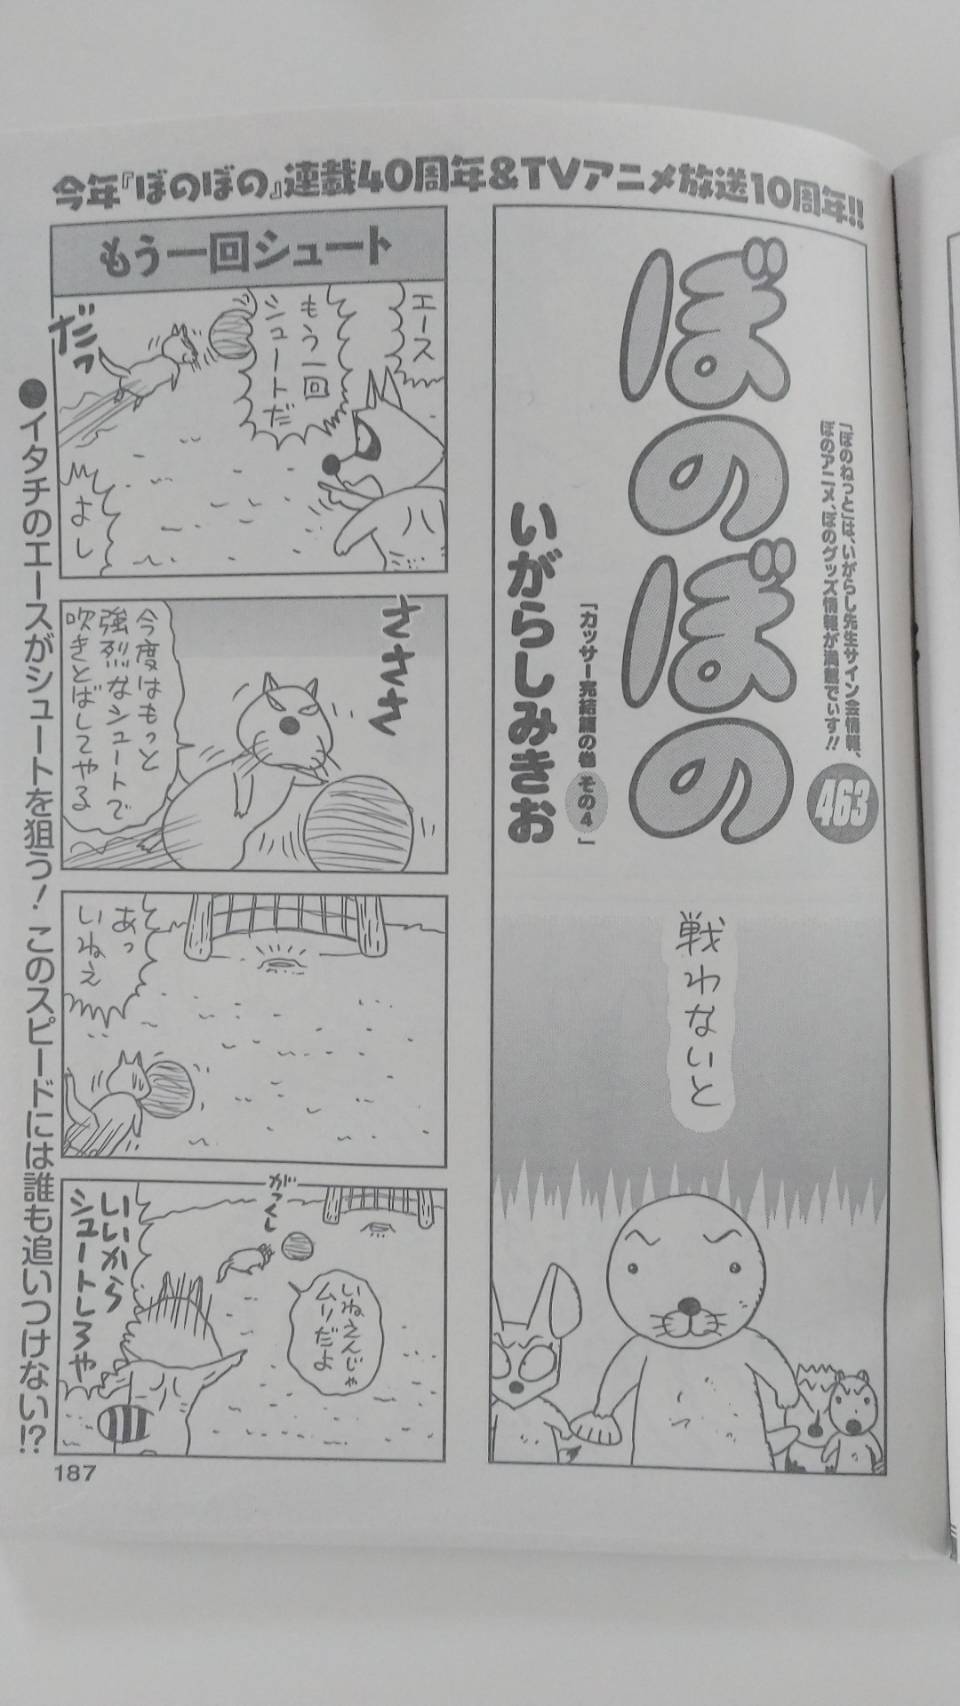 今年『ぼのぼの』連載40周年&TVアニメ放送10周年!!
「ぼのねっと」は、いがらし先生サイン会情報、
ぼのアニメ、ぼのグッズ情報が満載でぃす!!
463
ぼのぼの
「カッサー完結篇の巻 その4」
いがらしみきお
戦わないと
もう一回シュート
エース
もう一回
シュートだ
だっ
よし
さささ
今度はもっと
強烈なシュートで
吹きとばしてやる
あっ
いねえ
がっくし
いねえんじゃ
ムリだよ
いいから
シュートしろや
●イタチのエースがシュートを狙う! このスピードには誰も追いつけない!?
187